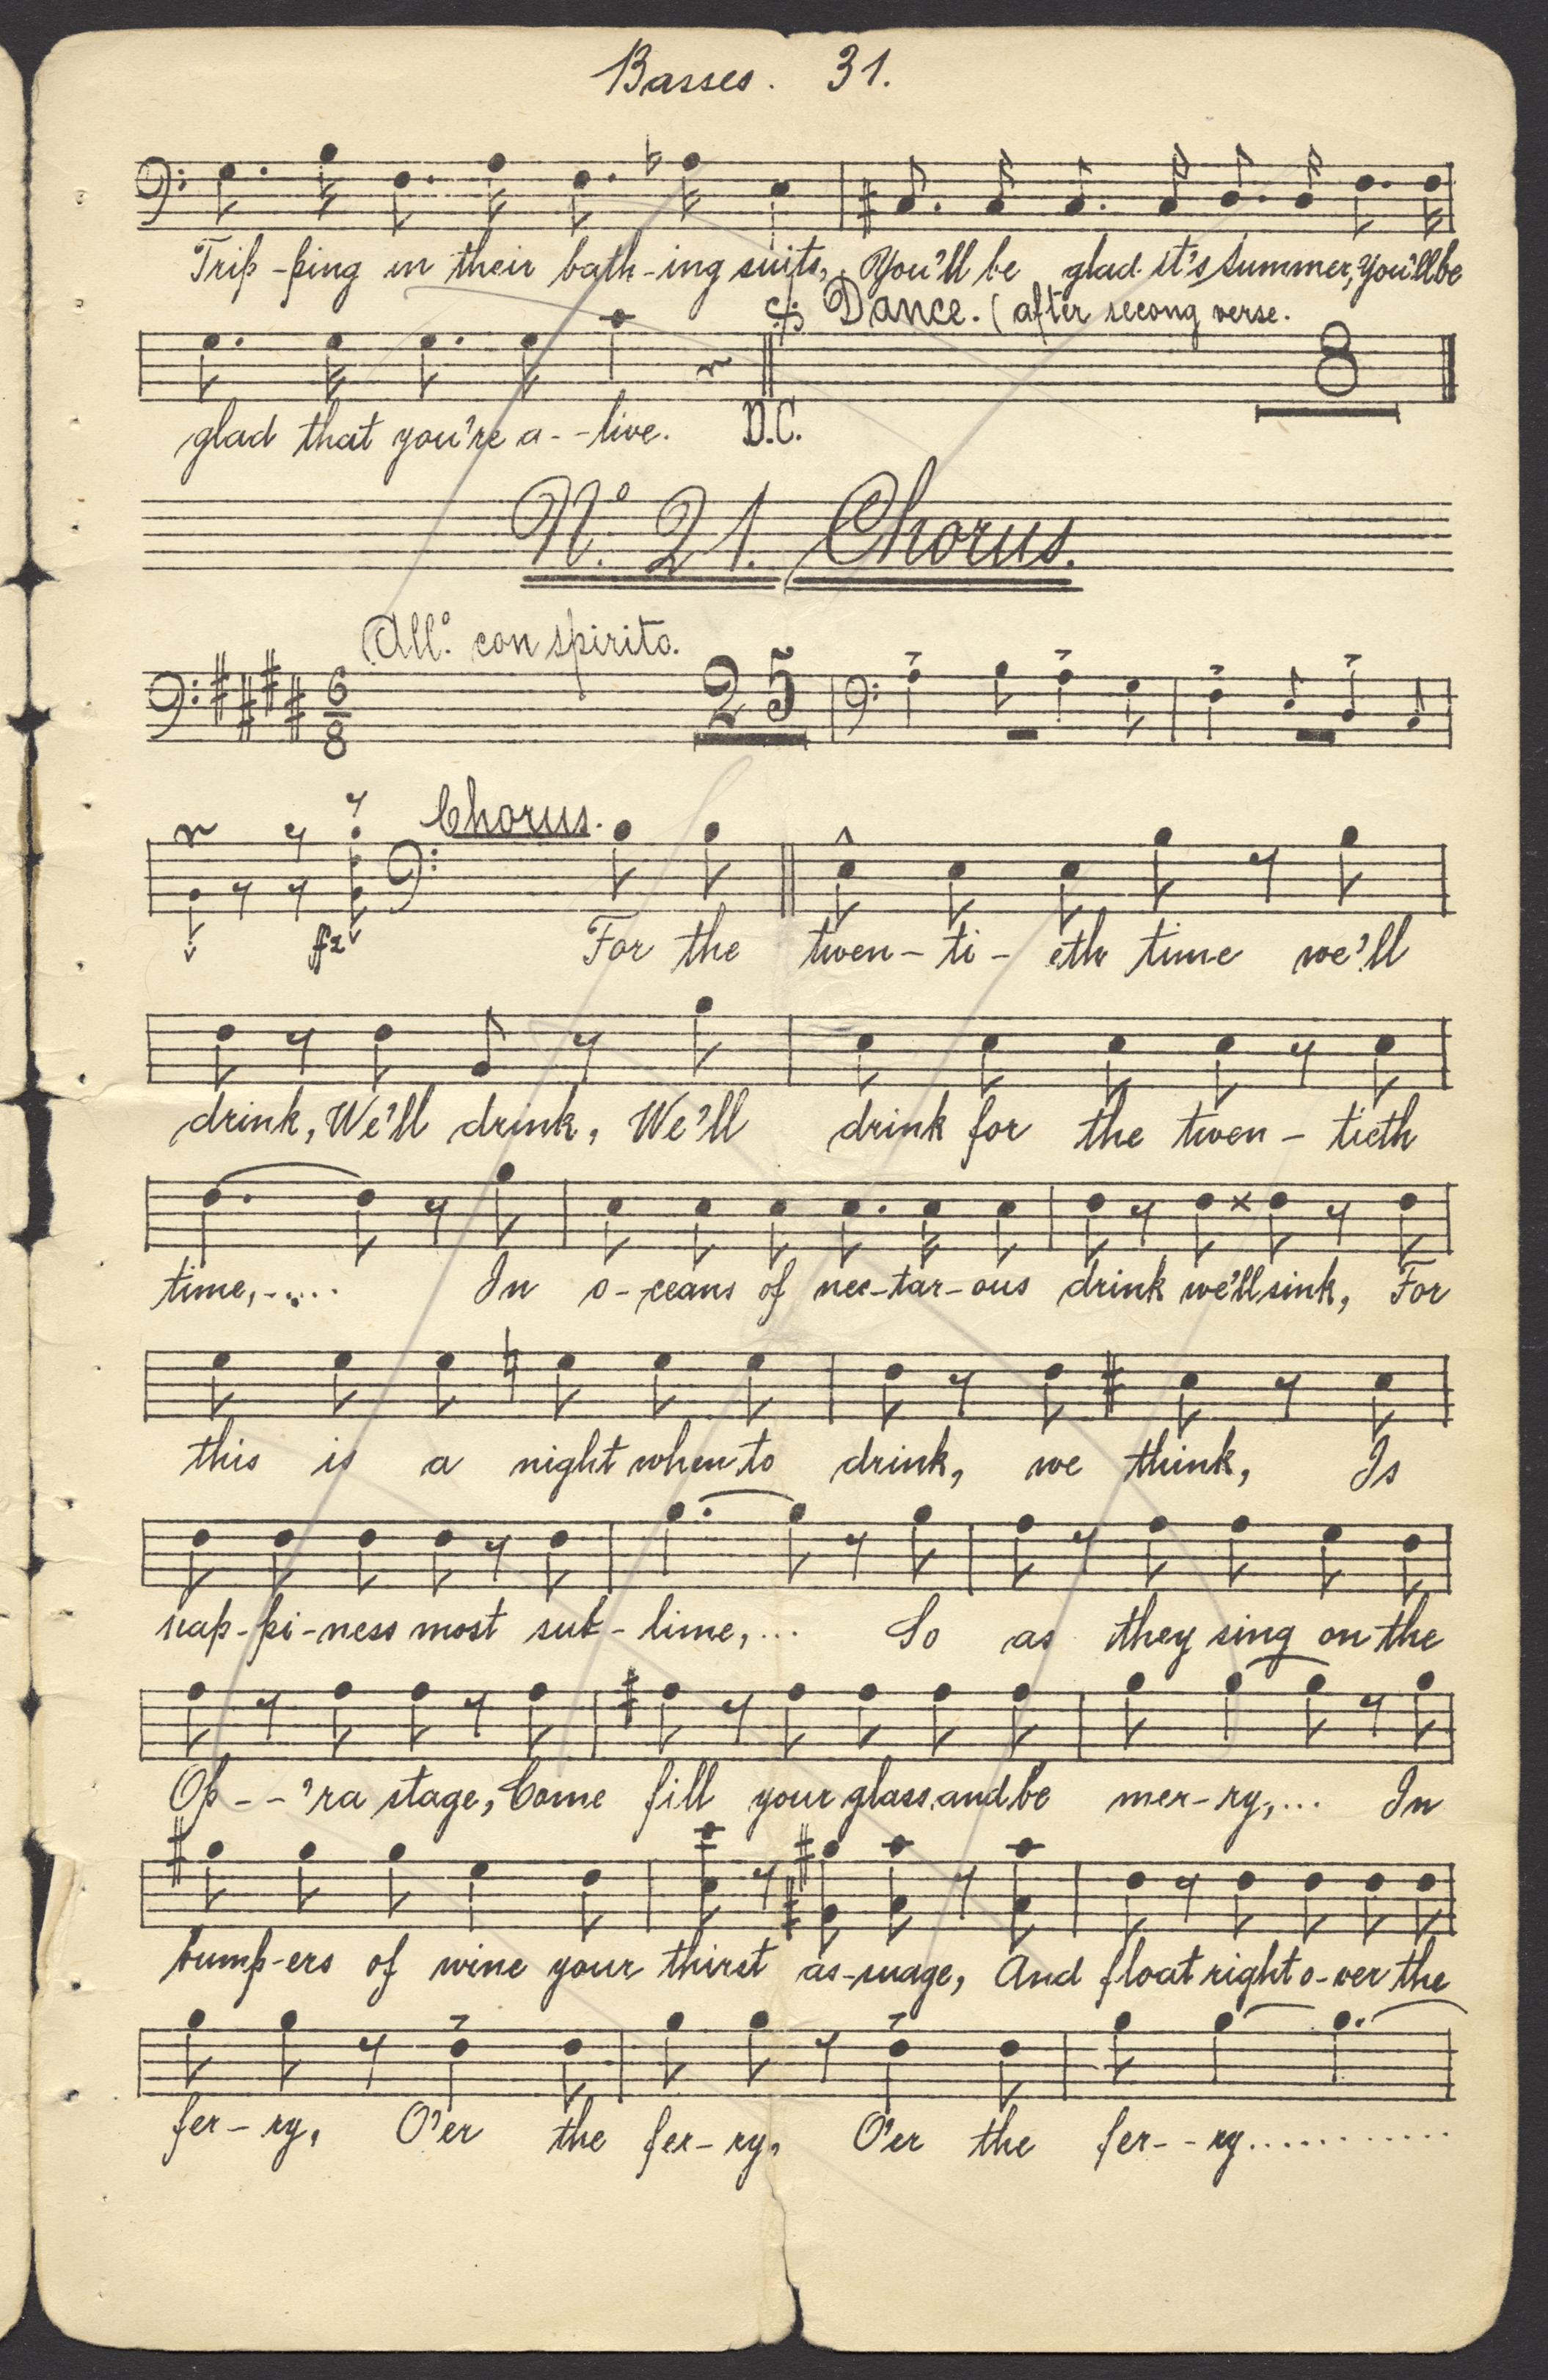 Basses. 31.
Trip-ping in their bath-ing suits, You'll be glad it's summer, you'll be
Dance. (after secong verse.
8
glad that you're a--live. D.C.
No. 21. Chorus.
All.o con spirito.
6 8 25
Chorus.
fz
For the twen-ti-eth time we'll
drink, We'll drink, We'll drink for the twen-tieth
time,-.... In o-ceans of nec-tar-ous drink we'll sink, For
this is a night when to drink, we think, Is
hap-pi-ness most sub-lime,... So as they sing on the
Op--'ra stage, Come fill your glass and be mer-ry,... In
bump-ers of wine your thirst as-suage, And float right o-ver the
fer-ry, O'er the fer-ry, O'er the fer--ry............